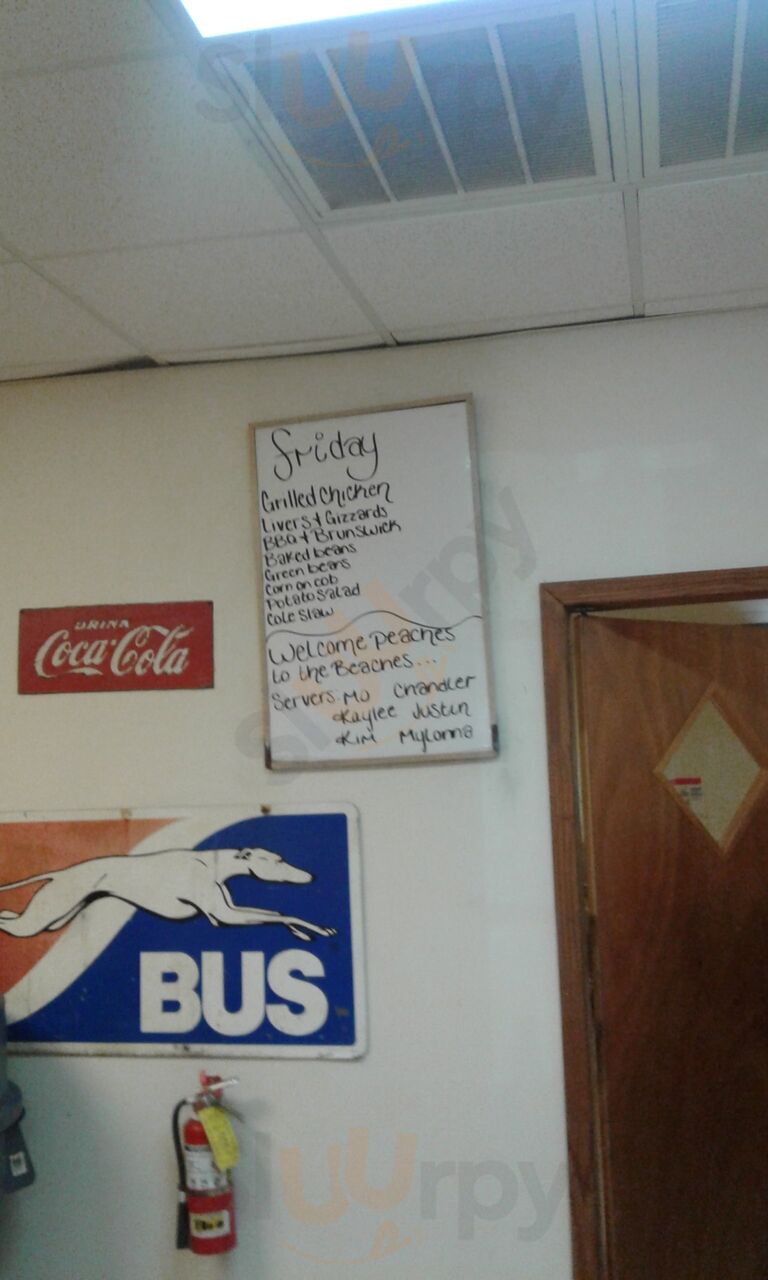 Friday
Grilled Chicken
Livers & Gizzards
BBQ & Brunswick
Baked beans
Green beans
Corn on cob
Potato salad
Cole slaw
Welcome Peaches
to the Beaches...
Servers: Mo Chandler
Kaylee Justin
Kim Mylanna
DRINK
Coca-Cola
BUS
Sluurpy
Sluurpy
Sluurpy